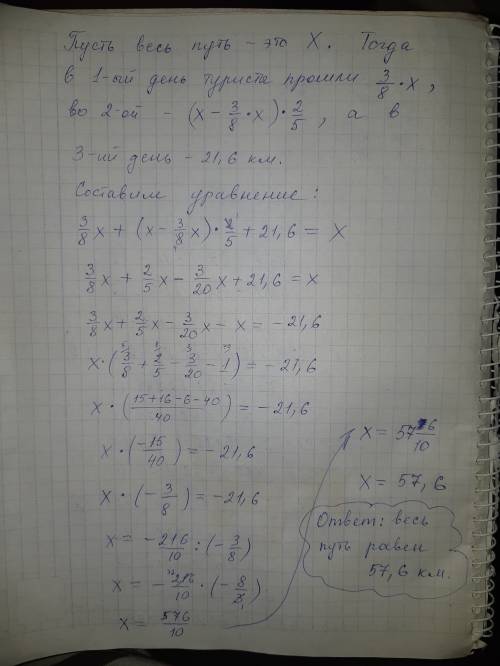 Пусть весь путь – это X. Тогда
в 1-ый день туриста прошли 3/8 · x,
во 2-ой – (x – 3/8 · x) · 2/5, а в
3-ий день – 21,6 км.
Составим уравнение:
3/8 x + (x – 3/8 x) · 2/5 + 21,6 = X
3/8 x + 2/5 x – 3/20 x + 21,6 = x
3/8 x + 2/5 x – 3/20 x – x = –21,6
x · (3/8 + 2/5 – 3/20 – 1) = –21,6
x · ((15+16–6–40)/40) = –21,6
x · (–15/40) = –21,6
x · (–3/8) = –21,6
x = –216/10 : (–3/8)
x = –216/10 · (–8/3)
x = 576/10
x = 57 6/10
x = 57,6
Ответ: весь
путь равен
57,6 км.